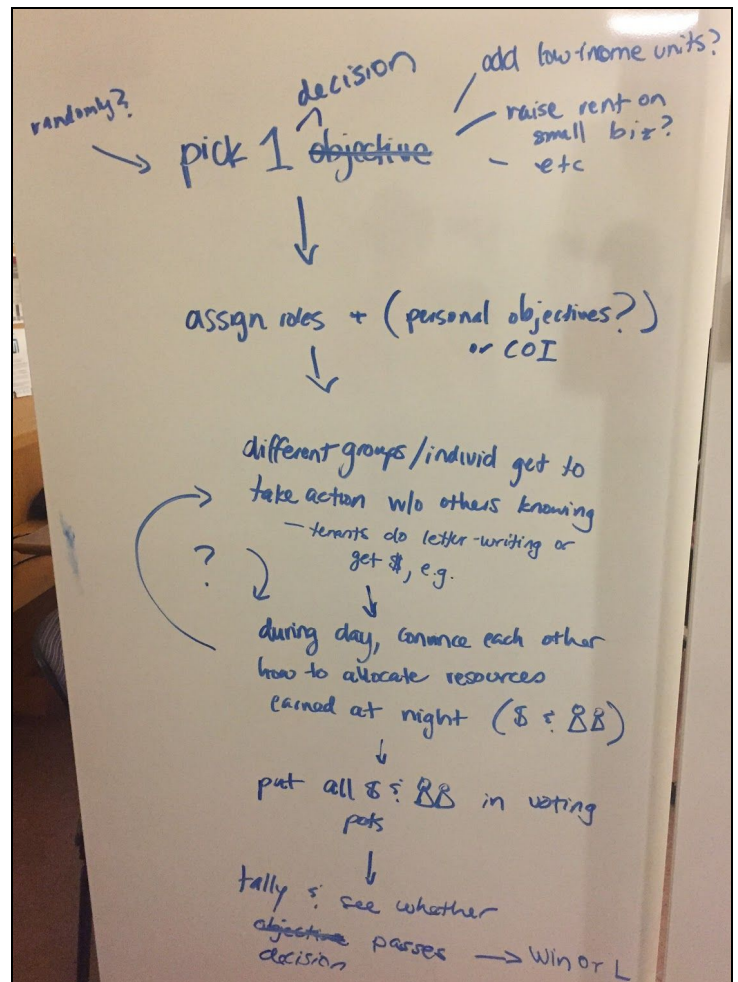 randomly?
decision
pick 1 objective
add low-income units?
raise rent on
small biz?
- etc
assign roles + (personal objectives?)
or COI
different groups/individ get to
take action w/o others knowing
- tenants do letter-writing or
get $, e.g.
?
during day, convince each other
how to allocate resources
earned at night ($ &
put all $ & 
in voting
pots
tally & see whether
objective passes → Win or L
decision